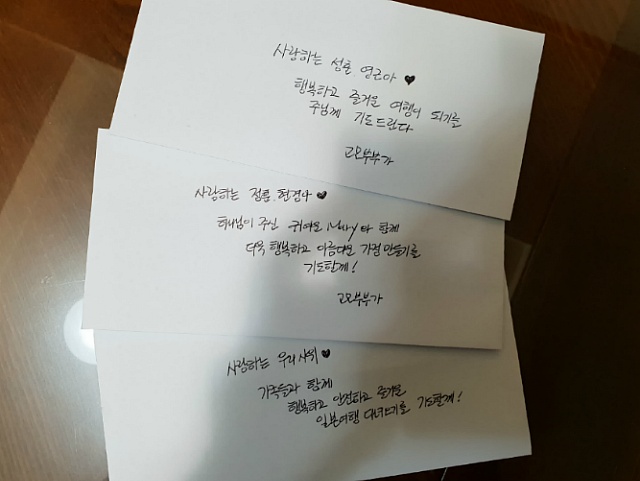 사랑하는 성훈 영근아 ♥
행복하고 즐거운 여행이 되기를
주님께 기도드린다
고모부부가
사랑하는 정훈.현경아 ♥
하나님이 주신 귀여운 Mary와 함께
더욱 행복하고 아름다운 가정 만들기를
기도할께!
고모부부가
사랑하는 우리 사위 ♥
가족들과 함께
행복하고 안전하고 즐거운
일본여행 다녀오기를 기도할께!